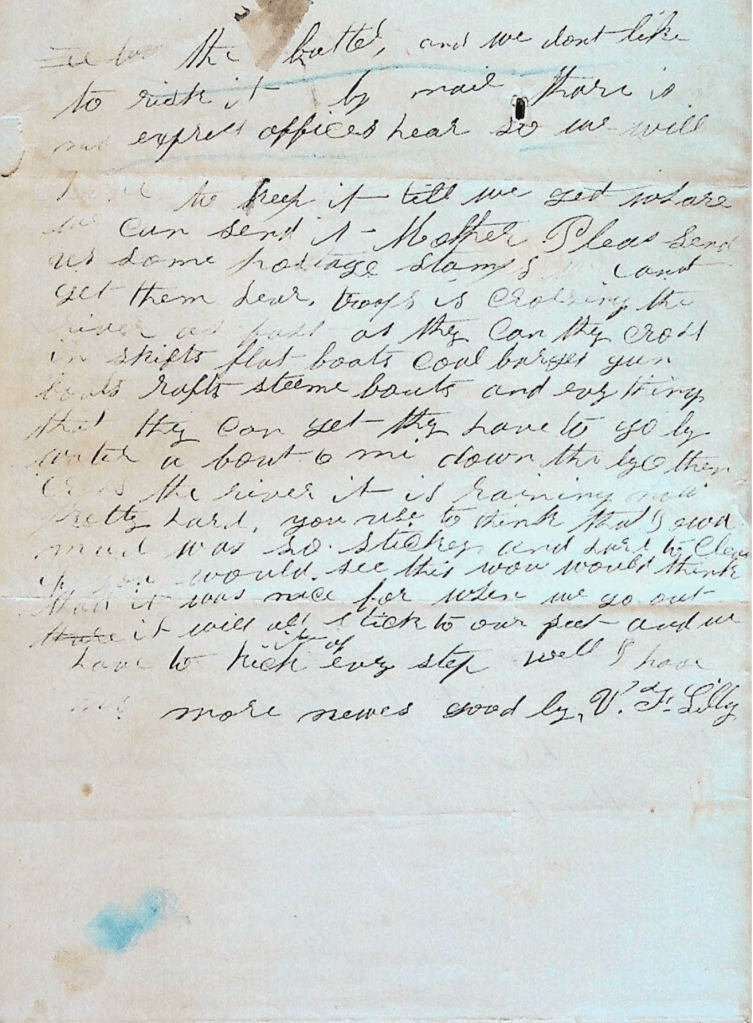 the battel, and we dont like
to risk it by mail thare is
no express offices hear so we will
to keep it till we get whare
we can send it - Mother Pleas send
us some postage stamps we cant
get them hear, troops is crossing the
river as fast as they can thy cross
in skifts flat boats coal barges gun
boats rafts steeme boats and evry thing
that thy can get thy have to go by
water a bout 6 mi down the then
cross the river it is raining now
pretty hard, you use to think that Iowa
mud was so sticky and hard to clean
if you would see this wou would think
that it was nice for when we go out
thare it will all stick to our feet and we
have to kick it of evry step well I have
no more newes good by, V. F. Lilly